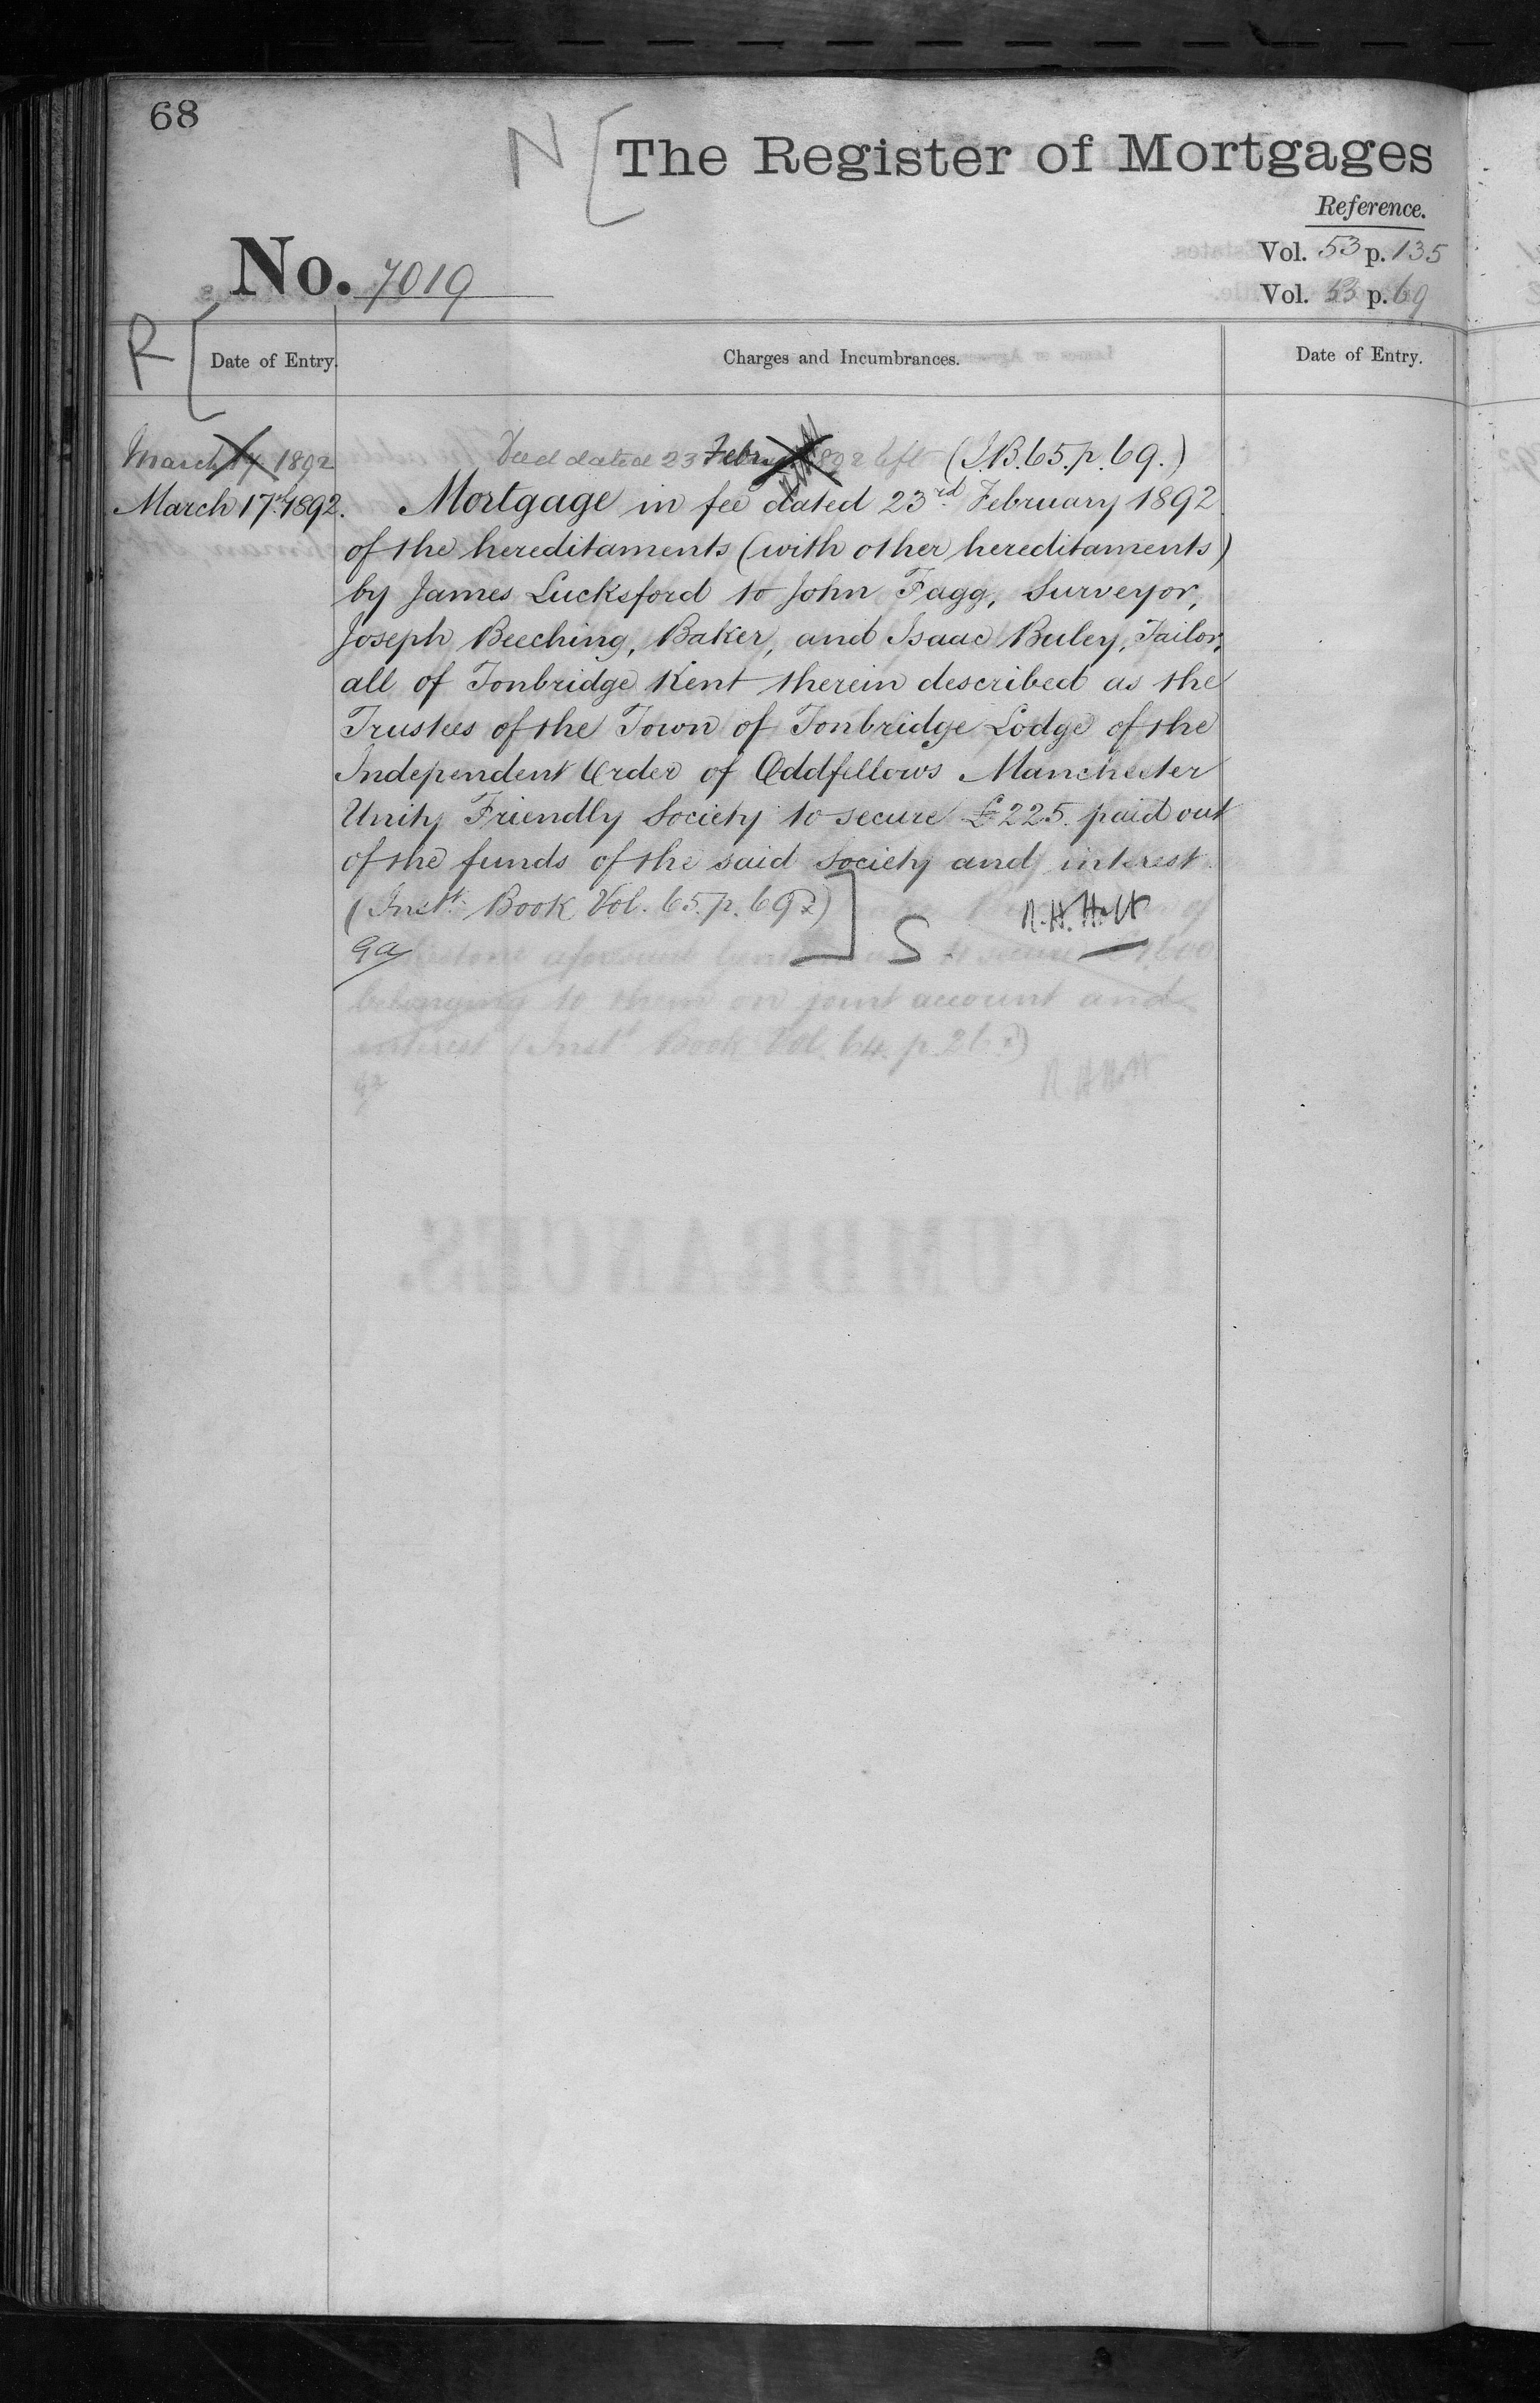 68
N [ The Register of Mortgages
Reference.
Vol. 53 p. 135
No. 7019
Vol. 53 p. 69
R [ Date of Entry. Charges and Incumbrances. Date of Entry.
March 17 1892 Deed dated 23 Febry 1892 left (I.B. 65. p. 69.)
March 17th 1892. Mortgage in fee dated 23rd February 1892
of the hereditaments (with other hereditaments)
by James Lucksford to John Fagg, Surveyor,
Joseph Beeching, Baker, and Isaac Buley, Tailor,
all of Tonbridge Kent therein described as the
Trustees of the Town of Tonbridge Lodge of the
Independent Order of Oddfellows Manchester
Unity Friendly Society to secure £225. paid out
of the funds of the said Society and interest.
(Instt. Book Vol. 65. p. 69 ) ] S
belonging to them on joint account and
interest (Instt Book Vol. 64. p. 26 )
INCUMBRANCES.